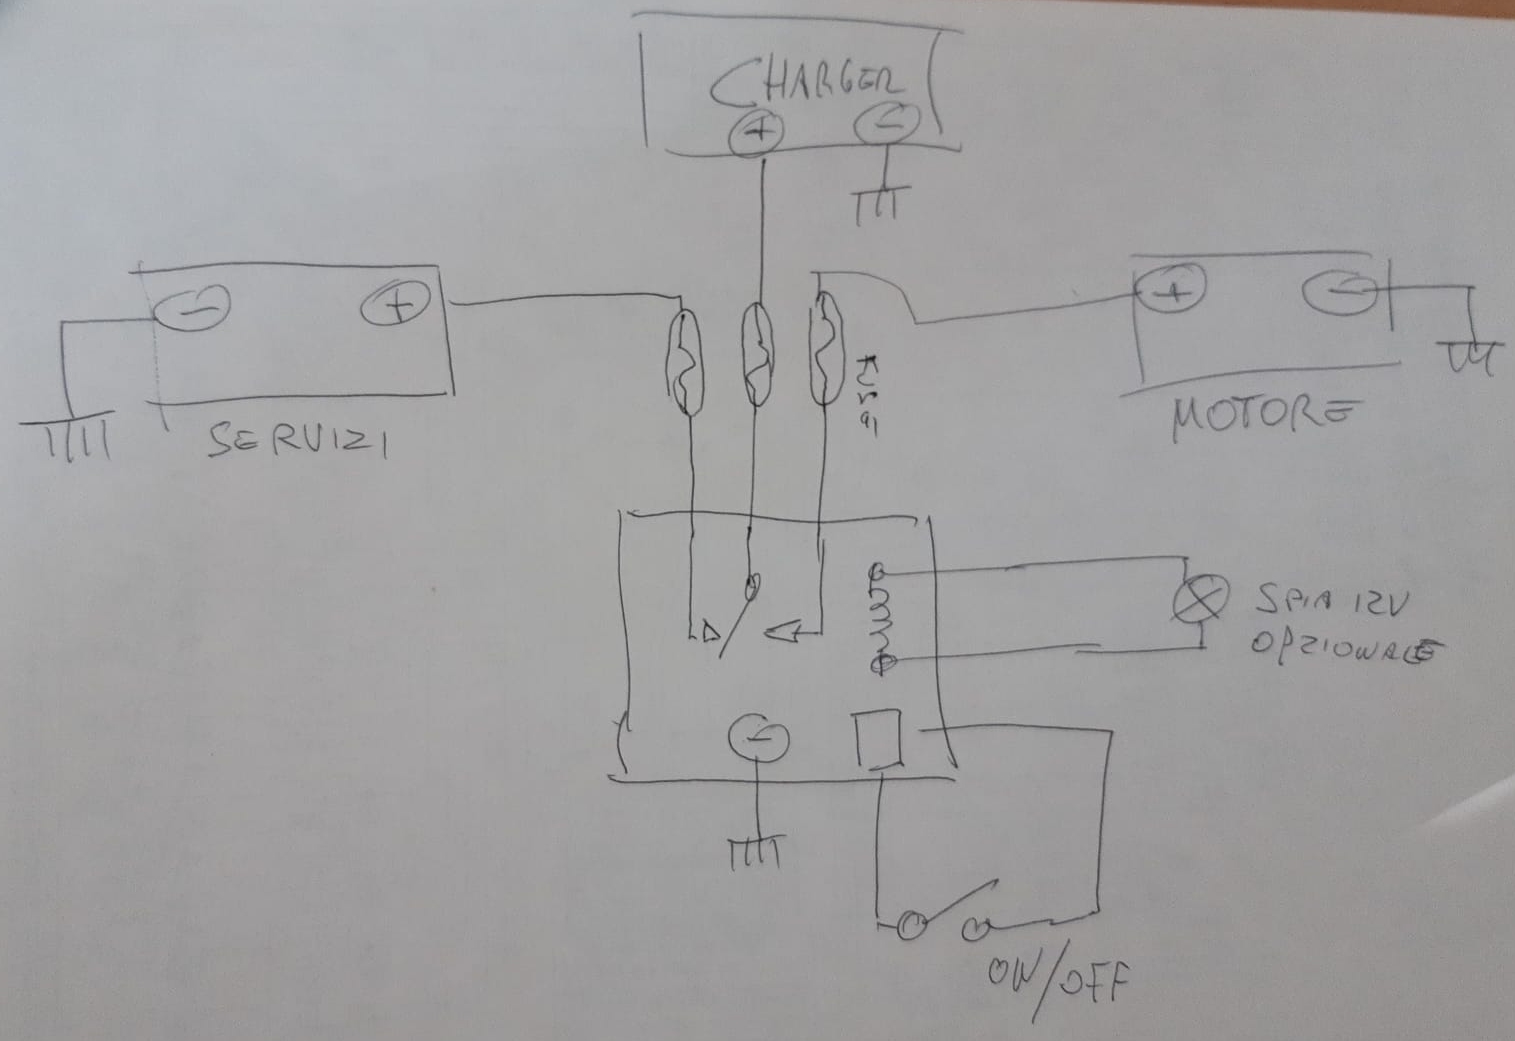 CHARGER
+
-
-
+
SERVIZI
+
-
MOTORE
SPIA 12V
OPZIONALE
-
ON/OFF